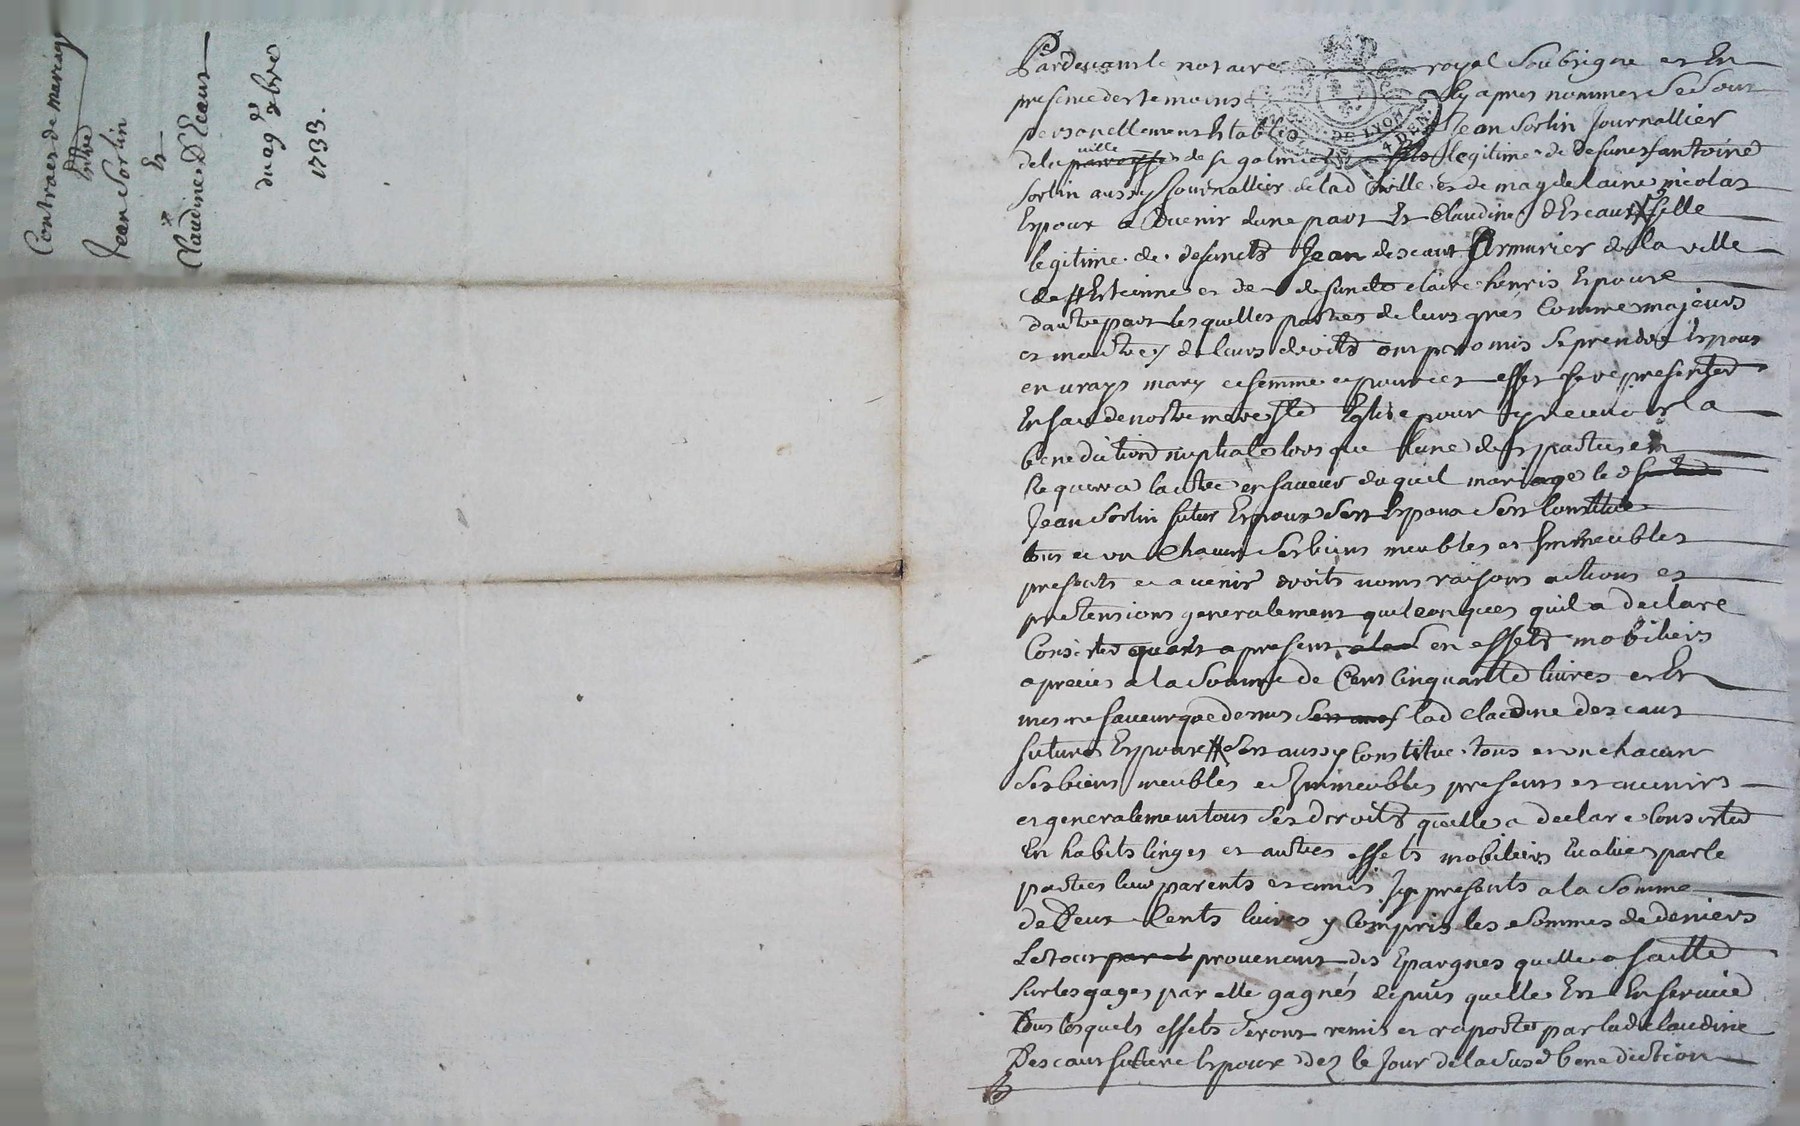 Contract de mariage
Entre
Jean Sorlin
Et
Claudine D'Ecaux
du 8bre
1733.
Pardevant le notaire royal Soubsigne et En
presence des temoins Cy apres nommes Se Sont
personellement Establis Jean Sorlin Journallier
de la ville de st galmier fils legitime de defunct antoine
Sorlin aussy Journallier de lad ville et de magdelaine nicolas
Epoux a Avenir dune part Et Claudine d'Escaux fille
legitime de defuncts Jean descaux Armurier de la ville
de st Estienne et de defuncte claire henris Epouse
dautre part lesquelles parties de leurs gres Comme majeurs
et maitres de leurs droits ont promis se prendre Epoux
en vrays mary et femme et pour cet effet se representer
En face de nostre mere ste Eglise pour y recevoir la
benediction nuptiale lors que lune des parties en
Requerra lautre en faveur duquel mariage le d
Jean Sorlin futur Epoux Sest Epoux Sest Constitue
tous et un chacun Ses biens meubles et Immeubles
presents et a venir droits noms raisons actions et
pretensions generalement quelconques quil a declare
Consister quant a present en effets mobiliers
apreciés a la Somme de Cent Cinquante livres et En
mesme faveur que dessus lad claudine descaux
future Epouse Sest aussy Constitue tous et un chacun
Ses biens meubles et Immeubles presents et avenirs
et generalement tous Ses droits quelle a declare Consister
En habits linges et autres effets mobiliers Evalués par le
parties leur parents et amis Icy presents a la Somme
de Deux Cents livres y Compris les Sommes de deniers
Lestout provenant des Epargnes quelle a faitte
Sur les gages par elle gagnés depuis quelle Est En Service
Tous lesquels effets Seront remis et raportés par lad claudine
Descaux future Epouse dez le Jour de la Susd benediction